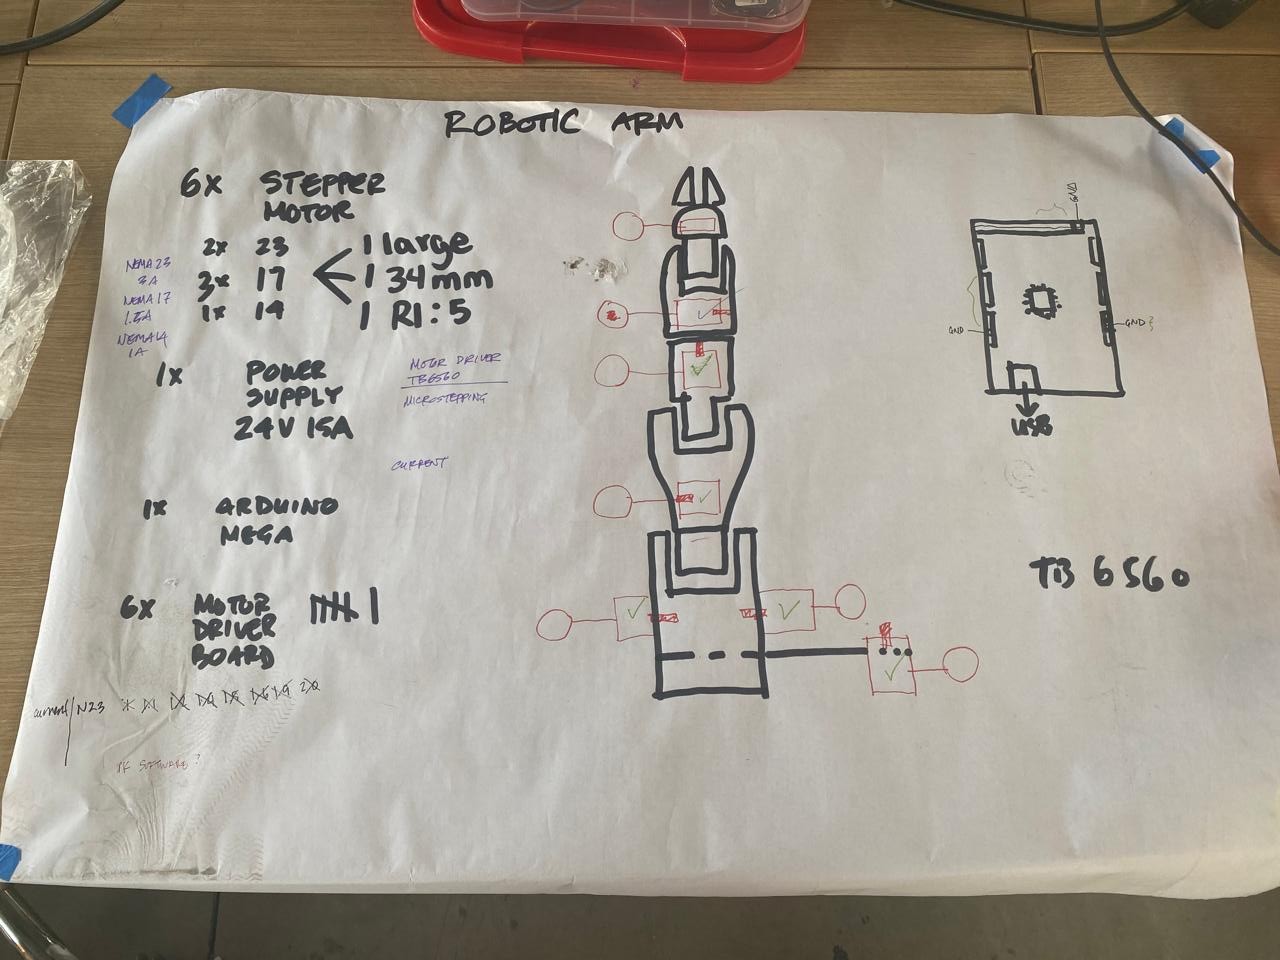 ROBOTIC ARM
6x STEPPER
MOTOR
2x 23
3x 17
1x 14
1 large
1 34mm
1 R1:5
NEMA 23
3A
NEMA 17
1.5A
NEMA 14
1A
1x POWER
SUPPLY
24V 15A
MOTOR DRIVER
TB6560
MICROSTEPPING
CURRENT
1x ARDUINO
MEGA
6x MOTOR
DRIVER
BOARD
current N23
SOFTWARE?
GND
GND
GND?
USB
TB 6560